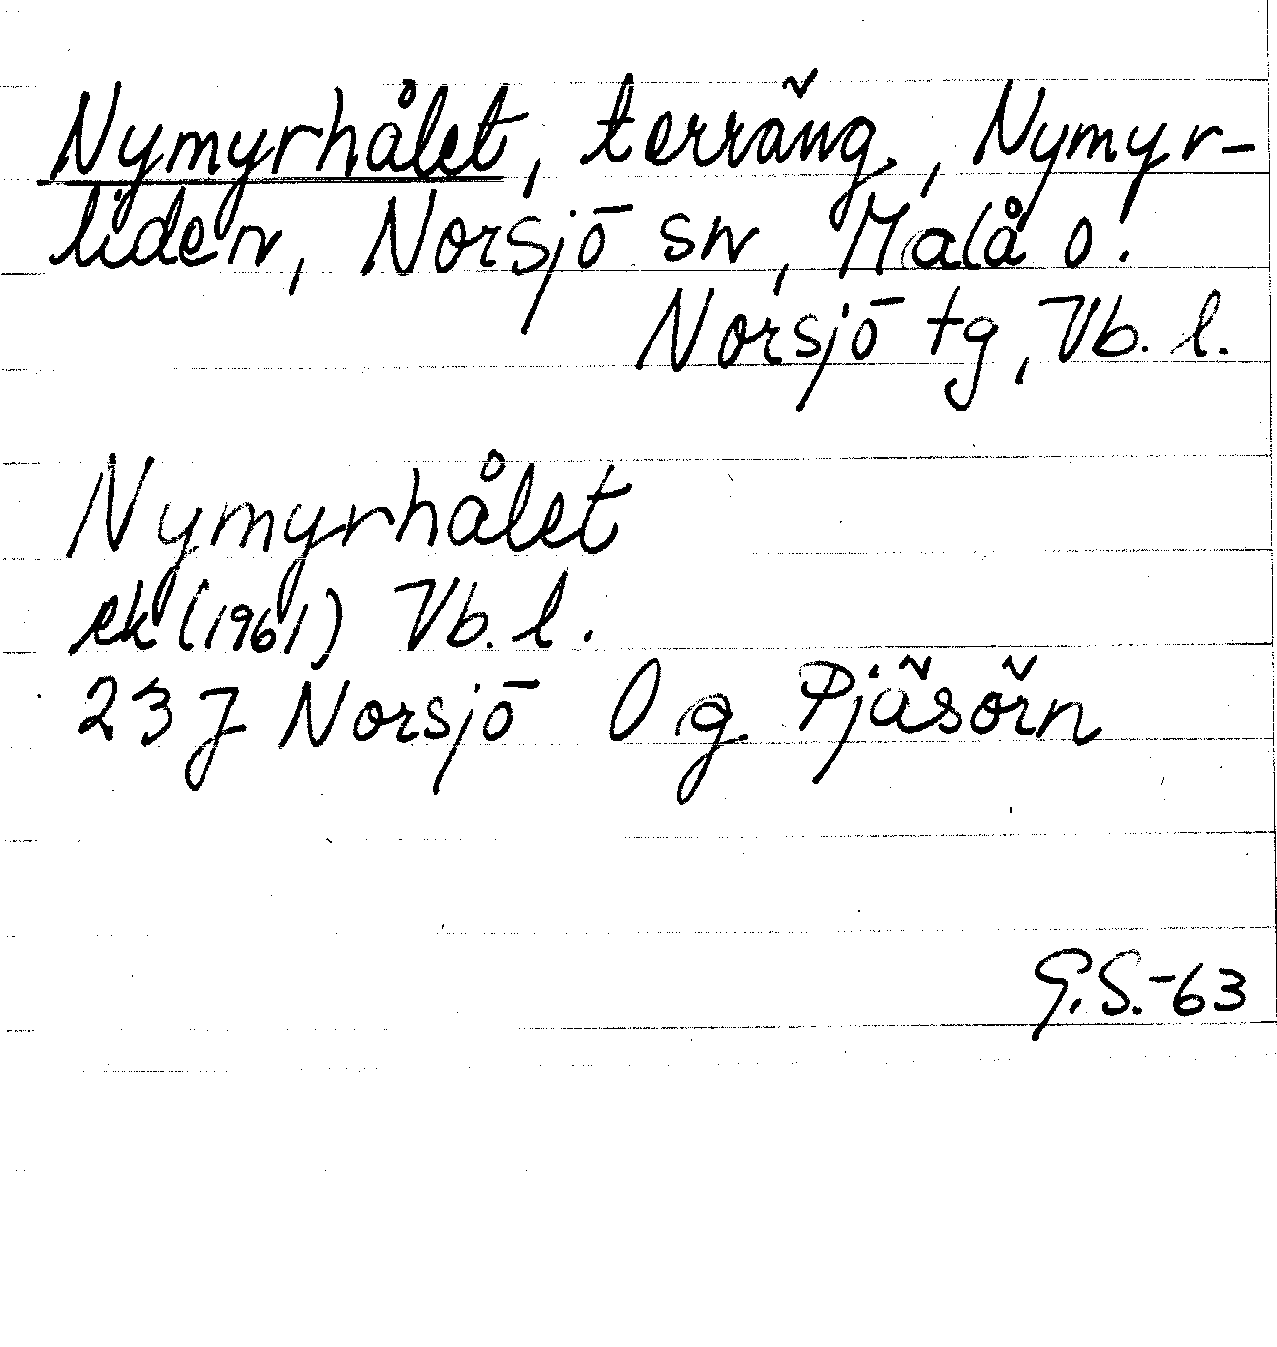 Nymyrhålet, terräng, Nymyr-
liden, Norsjö sn, Malå o.
Norsjö tg, Vb. l.
Nymyrhålet
ek (1961) Vb. l.
23 J Norsjö 0 g Pjäsörn
G.S.-63